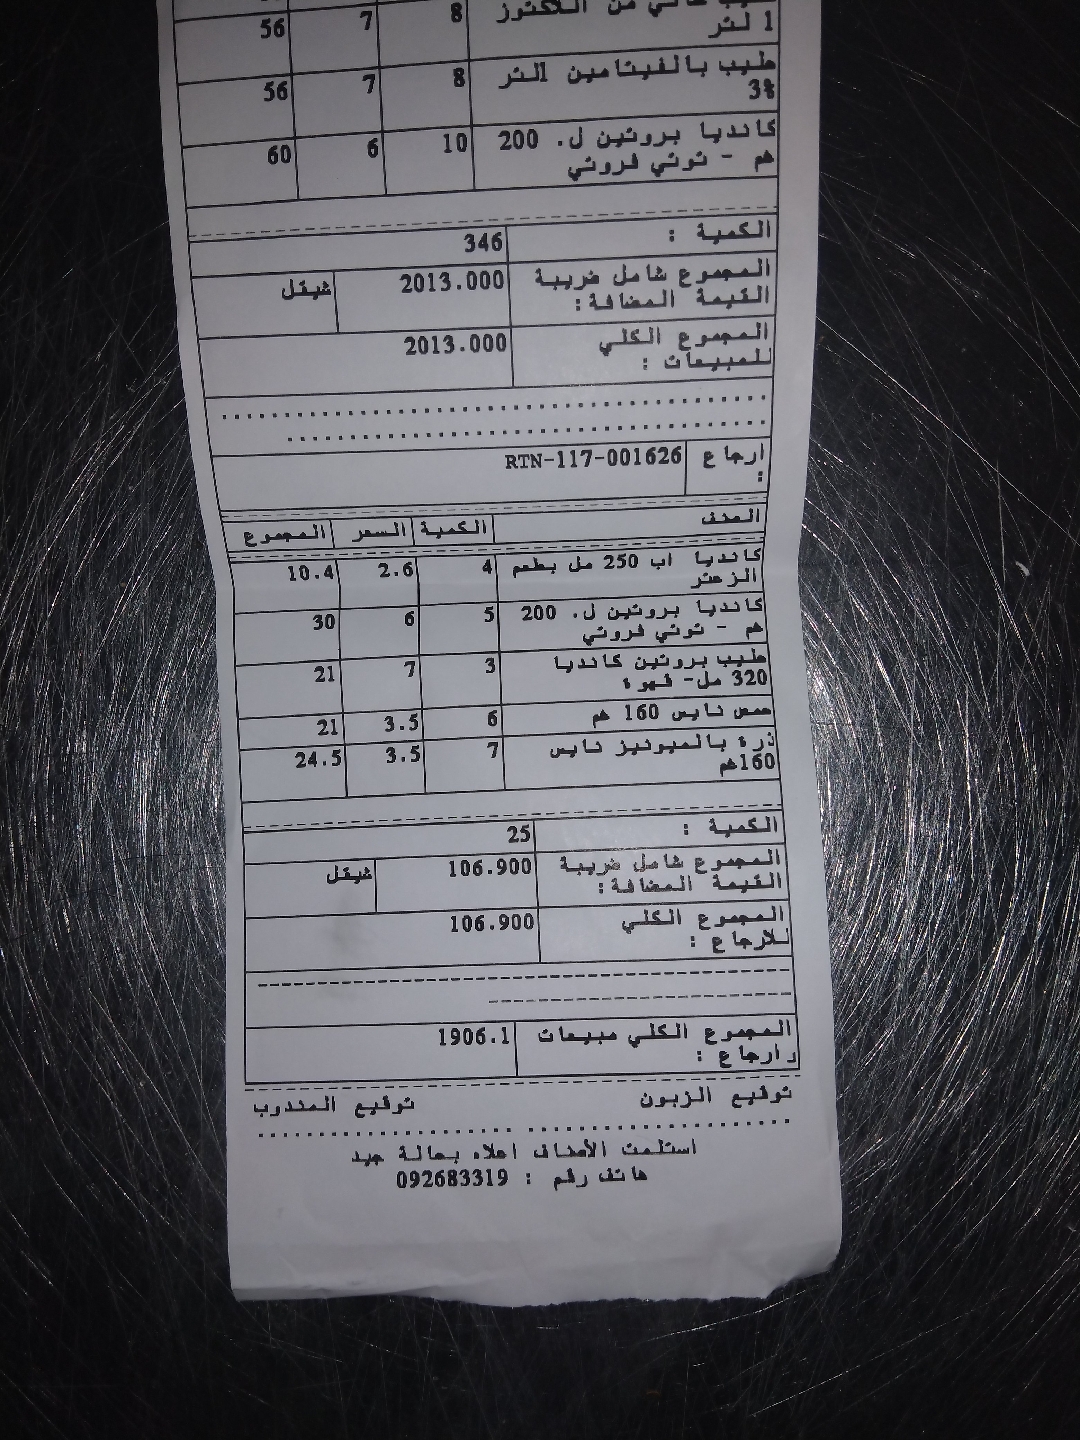 من اللاكتوز 8 7 56
1 لتر
حليب بالفيتامين 1لتر 8 7 56
3%
كانديا بروتين ل. 200 10 6 60
غم - توتي فروتي
الكمية : 346
المجموع شامل ضريبة 2013.000 شيقل
القيمة المضافة:
المجموع الكلي 2013.000
للمبيعات :
ارجاع RTN-117-001626
:
الصنف الكمية السعر المجموع
كانديا اب 250 مل بطعم 4 2.6 10.4
الزعتر
كانديا بروتين ل. 200 5 6 30
غم - توتي فروتي
حليب بروتين كانديا 3 7 21
320 مل- قهوة
حمص نايس 160 غم 6 3.5 21
ذرة بالميونيز نايس 7 3.5 24.5
160غم
الكمية : 25
المجموع شامل ضريبة 106.900 شيقل
القيمة المضافة:
المجموع الكلي 106.900
للارجاع :
المجموع الكلي مبيعات 1906.1
وارجاع :
توقيع الزبون توقيع المندوب
استلمت الأصناف اعلاه بحالة جيد
هاتف رقم : 092683319